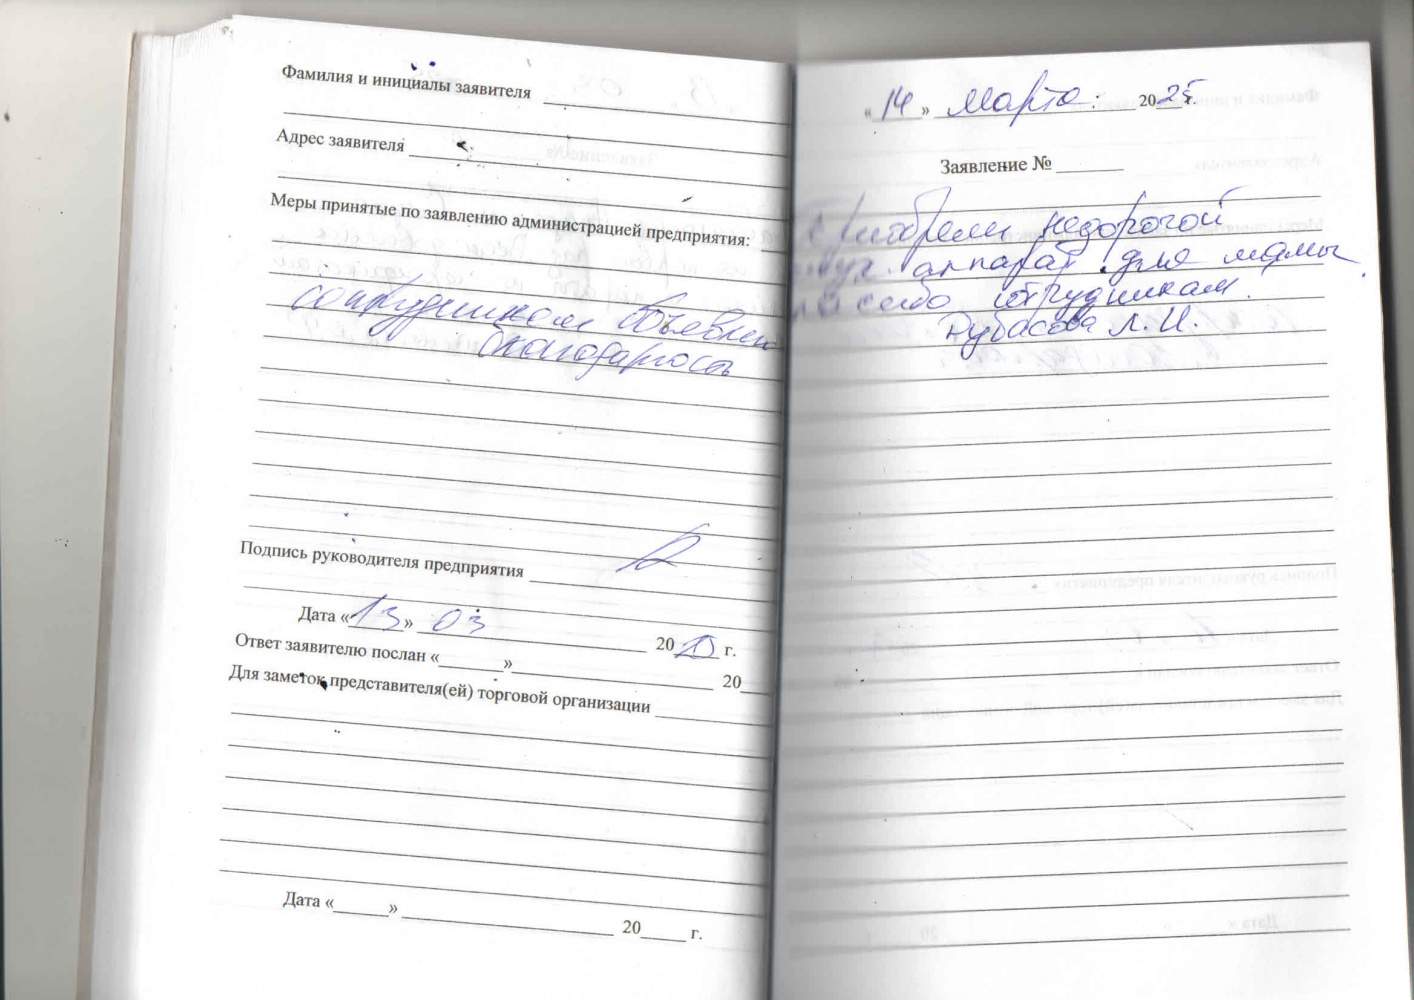 Фамилия и инициалы заявителя
Адрес заявителя
Меры принятые по заявлению администрацией предприятия:
сотрудникам объявлена
благодарность
Подпись руководителя предприятия
Дата «13» 03 20 г.
Ответ заявителю послан «______»____________ 20__
Для заметок представителя(ей) торговой организации
Дата «______» ____________ 20____ г.
«14» Марта. 2025г.
Заявление № ______
Приобрели недорогой
слух. аппарат для мамы.
Спасибо сотрудникам.
Дубасова Л.И.